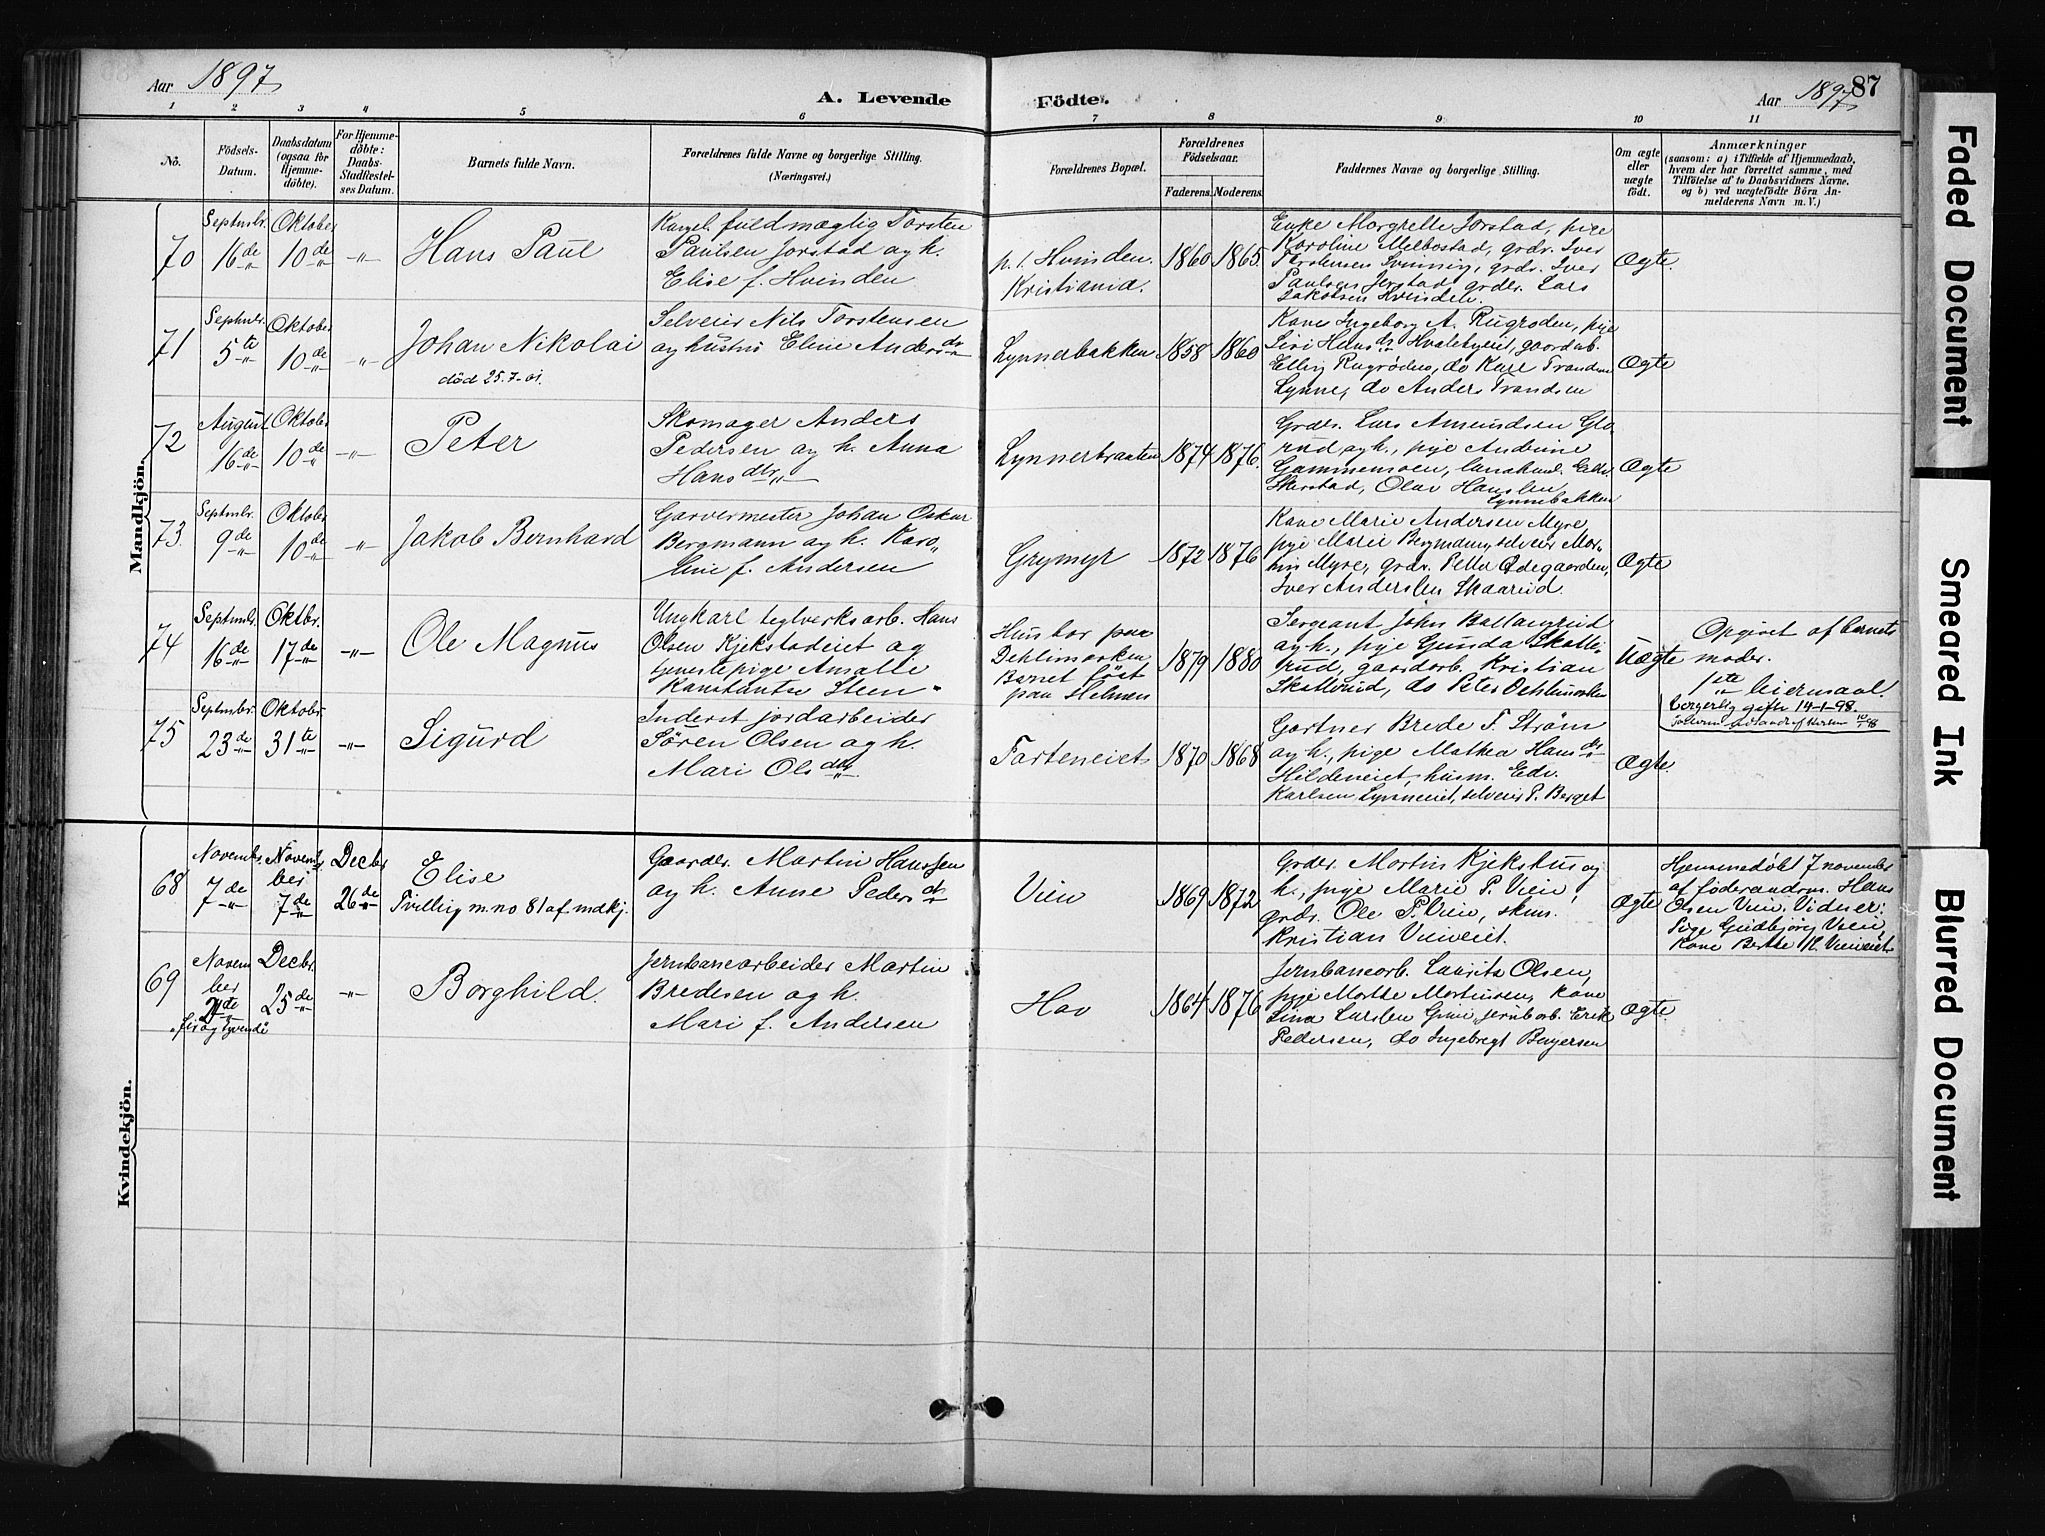 Aar 1897
A. Levende Födte.
Aar 1897
87
1 2 3 4 5 6 7 8 9 10 11
No.
Födsels-
Datum.
Daabsdatum
(ogsaa for
Hjemme-
döbte).
For Hjemme-
döbte:
Daabs-
Stadfæstel-
ses Datum.
Barnets fulde Navn.
Forældrenes fulde Navne og borgerlige Stilling.
(Næringsvei.)
Forældrenes Bopæl.
Forældrenes
Födselsaar.
Faderens. Moderens.
Faddernes Navne og borgerlige Stilling.
Om ægte
eller
uægte
födt.
Anmærkninger
(saasom: a) i Tilfælde af Hjemmedaab,
hvem der har forrettet samme, med
Tilföielse af to Daabsvidners Navne,
og b) ved uægtefödte Börn An-
melderens Navn m. V.)
Mandkjön.
70
Septmbr.
16de
Oktober
10de
Hans Paul
fuldmægtig Torsten
Paulsen Jorstad og h.
Elise f. Hvinden
p. t. Hvinden.
Kristiania.
1860
1865.
Enke Margrethe Jorstad, pige
Karoline Melbostad, grdr. Iver
Svinning, grdr. Iver
Paulsen Jorstad grdr. Lars
Jakobsen Hvinden.
Ægte.
71
Septmbr.
5te
Oktober
10de
Johan Nikolai
död 25.7-01.
Selveier Nils Torstensen
og hustru Eline Andersdr
Lynnebakken
1858
1860
Kone Ingeborg A. Rugroden, pige
Siri Hansdr Hvalebyeiet, gaardb.
Elling Rugröden, do Kari Trandsen
Lynne, do Anders Trandsen
Ægte
72
August
16de
Oktober
10de
Peter
Skomager Anders
Pedersen og h. Anna
Hansdtr
Lynnebraaten
1874
1876.
Grdr. Lars Amundsen Glo
rud og h., pige Andrine
Gammensoen, Edv.
Skerstad, Olav Hanssen
Lynnebakken
Ægte
73.
Septmbr.
9de
Oktober
10de
Jakob Bernhard
Garvermester Johan Oskar
Bergmann og h. Karo„
line f. Andersen
Grymyr
1872
1876
Kone Marie Andersen Myre,
pige Marie Bergmann, selveier Mar„
tin Myre, grdr. Petter Ödegaarden,
Iver Anderssen Skaarud.
Ægte
74
Septmbr.
16de
Oktbr.
17de
Ole Magnus
Ungkarl teglverksarb. Hans
Olsen Kjekstadeiet og
tjenestepige Amalie
Konstantse Steen
Hun bor paa
Dehlimarken
Barnet föt
paa Helmen
1879
1880
Sergeant John Ballangrud
og h., pige Gunda Skatte„
rud, gaardarb. Kristian
Skatterud, do Peter Dehlimarken
Uægte
Opgivet af barnets
moder.
1ste leiermaal.
borgerlig gifte 14-1-98.
75
Septmbr.
23de
Oktober
31te
Sigurd
Inderst jordarbeider
Sören Olsen og h.
Mari Olsdtr
Farteneiet
1870
1868
Gartner Brede F. Ström
og h., pige Mathea Hansdr
Hildeneiet, husm. Edv.
Karlsen Lynneeiet, selveier P. Berget
Ægte.
Kvindekjön.
68
Novembr.
7de
Novem
ber
7de
Decbr
26de
Elise
Tvilling m. no 81 af mdkj.
Gaardbr. Martin Hanssen
og h. Anne Pedersdr
Vien
1869
1872
Grdbr. Martin Kjekshus og
h., pige Marie P. Vien,
grdr. Ole P. Vien, skm.
Kristian Vieneiet.
Ægte
Hjemmedöbt 7 november
af föderaadsm. Hans
Olsen Vien. Vidner:
Pige Gudbjörg Vien,
Kone Berthe K. Vieneiet
69
Novem
ber
24de
„fir og tyvende"
Decbr.
25de
Borghild.
Jernbanearbeider Martin
Bredesen og h.
Mari f. Andersen
Hov
1864
1876
Jernbanearb. Laurits Olsen,
pige Marthe Martinsen, kone
Lina Larssen jernbarb. Erik
Pedersen, do Ingebregt Børgersen
Ægte.
Faded Document
Smeared Ink
Blurred Document